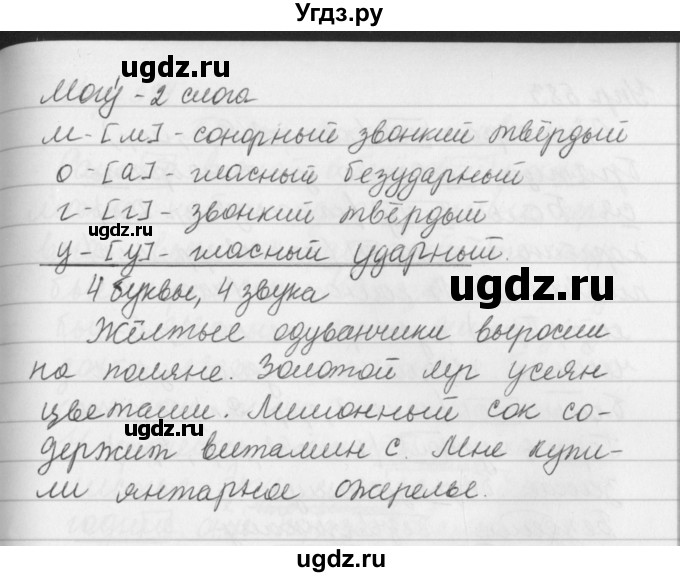 Угдз.ру
ugdz.ru
Могу́ - 2 слога
м - [м] - сонорный звонкий твёрдый
о - [а] - гласный безударный
ugdz.ru
г - [г] - звонкий твёрдый
у - [у] - гласный ударный.
4 буквы, 4 звука
ugdz.ru
Жёлтые одуванчики выросли
на поляне. Золотой луг усеян
цветами. Лимонный сок со-
ugdz.ru
держит витамин с. Мне купи-
ли янтарное ожерелье.
ugdz.ru